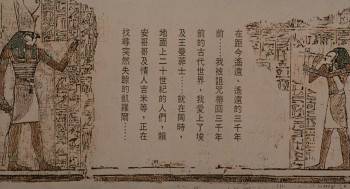 在距今遙遠、遙遠的三千年
前……我被詛咒帶回三千年
前的古代世界，我愛上了埃
及王曼菲士……就在同時，
地面上二十世紀的人們，賴
安哥哥及情人吉米等，正在
找尋突然失踪的凱羅爾……